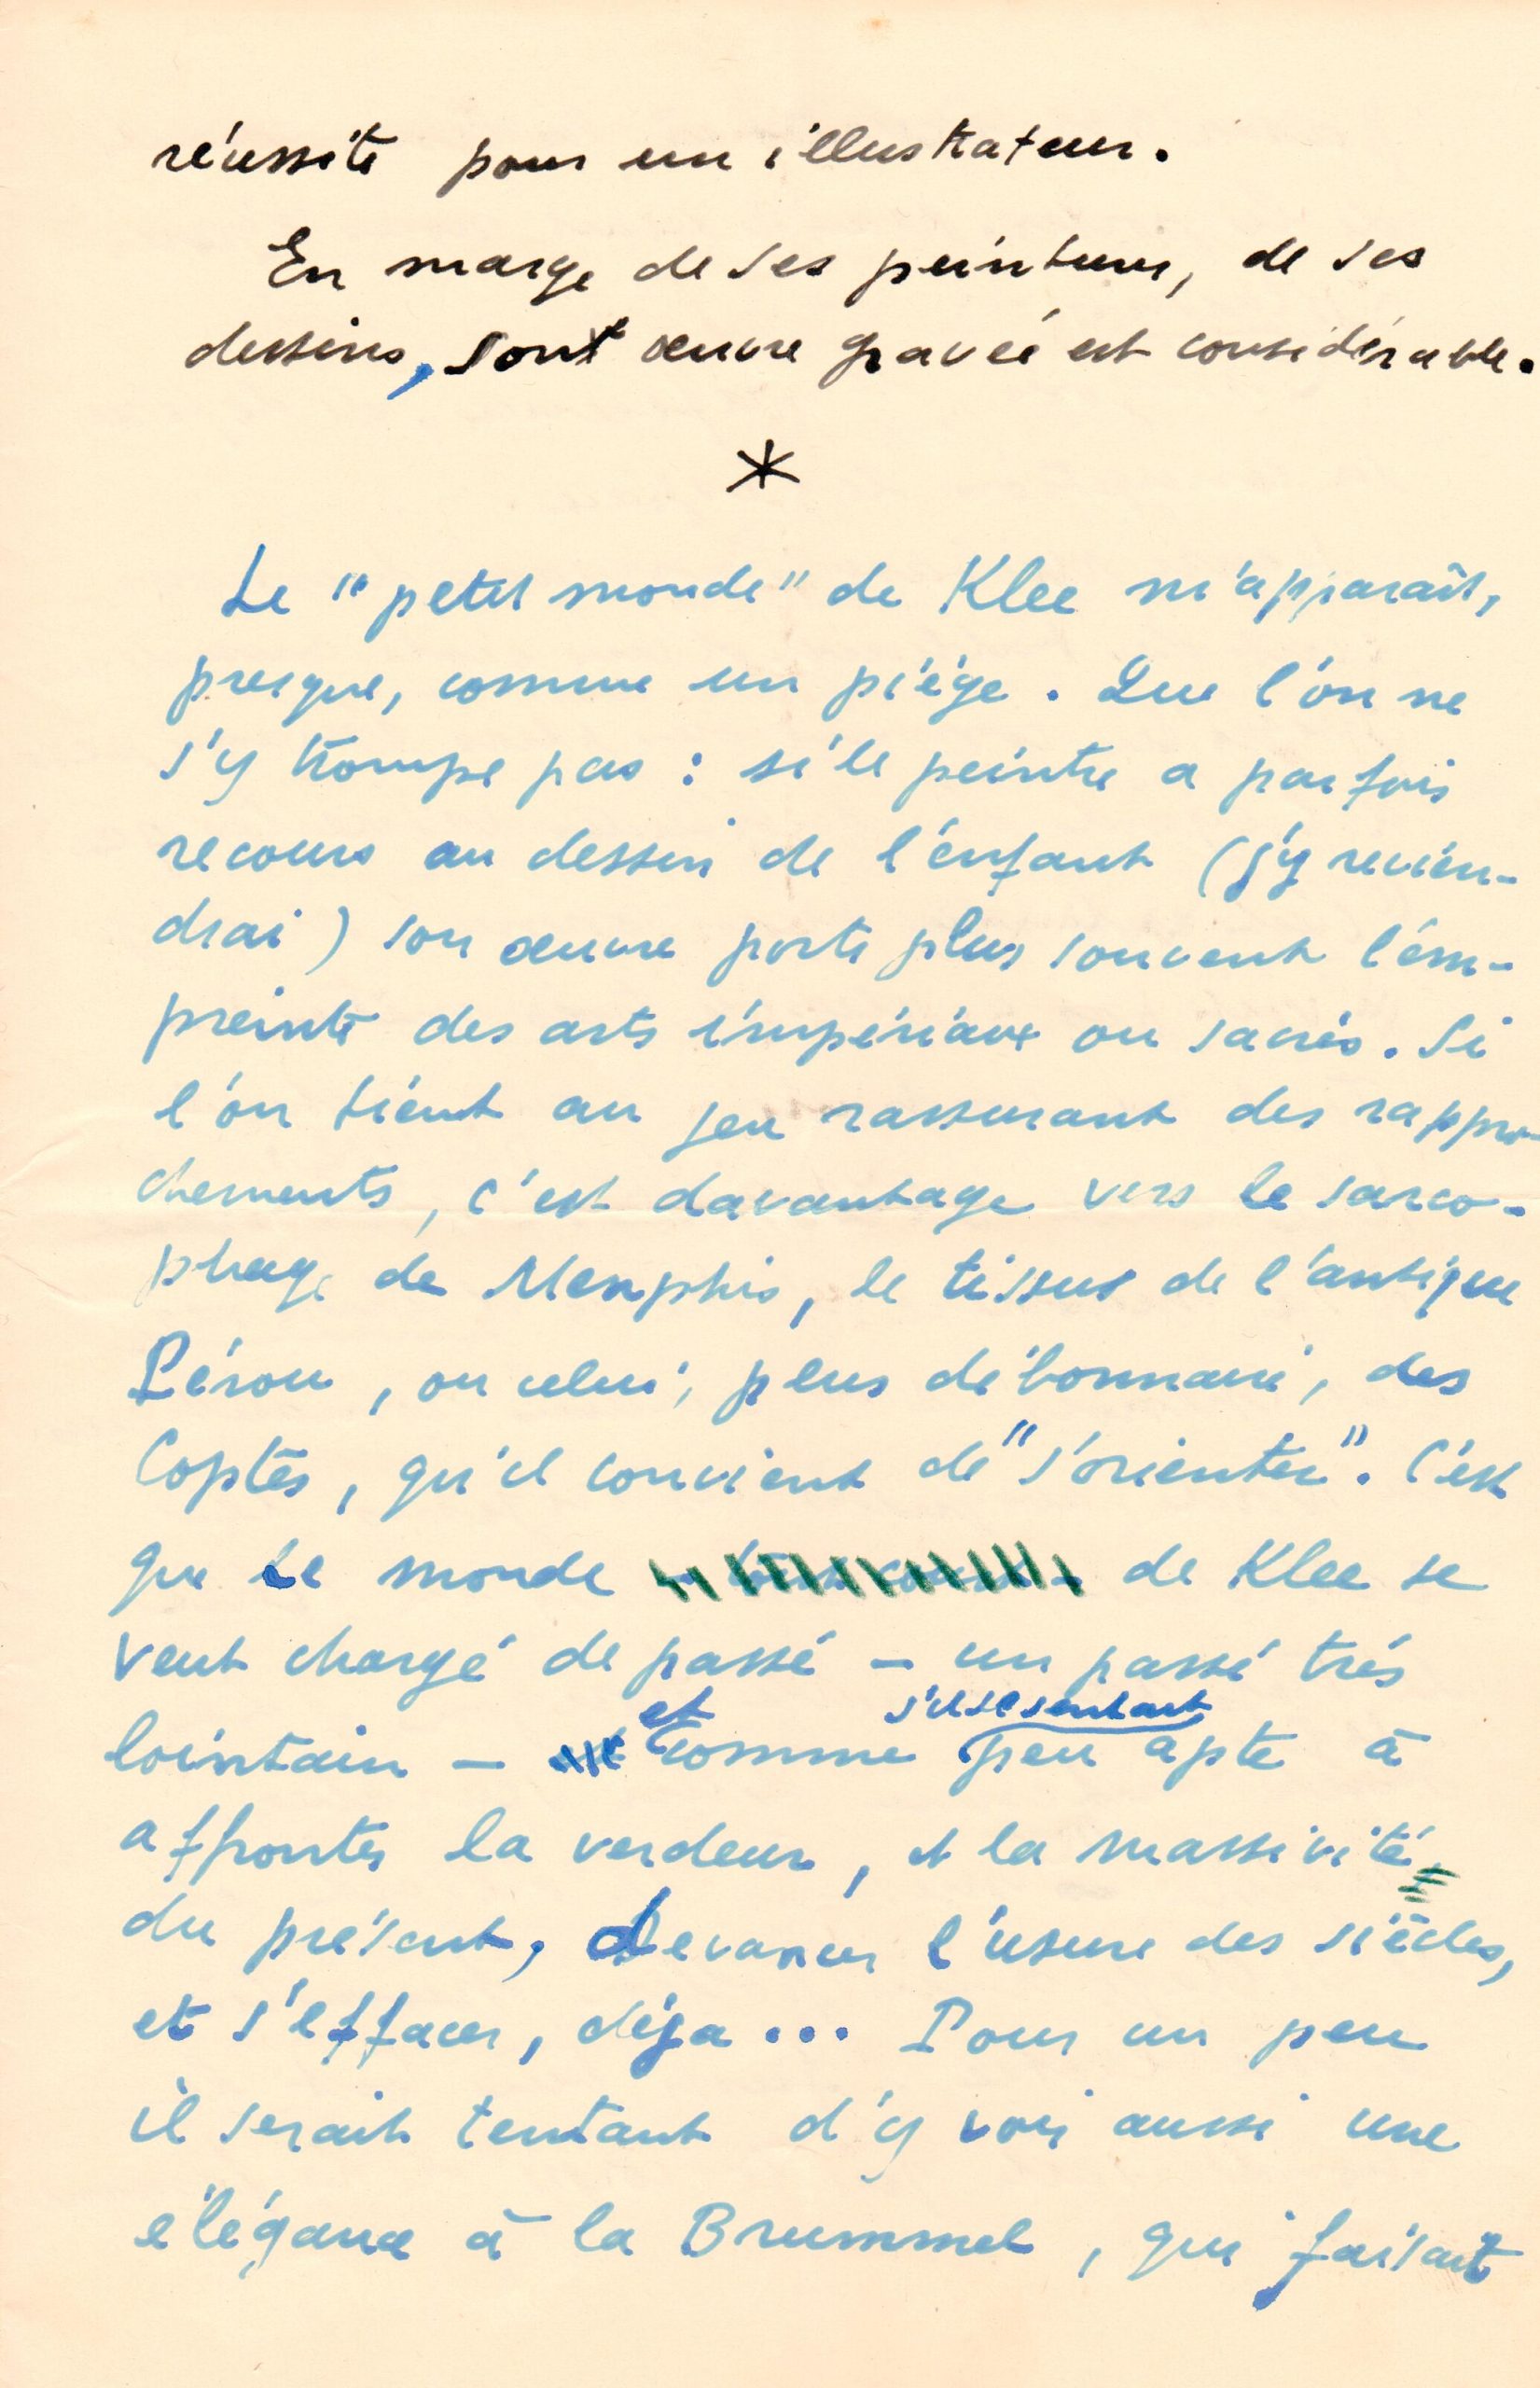 réussite pour un illustrateur.
En marge de ses peintures, de ses
dessins, sont œuvre gravée est considérable.
*
Le "petit monde" de Klee m'apparaît,
presque, comme un piège. Que l'on ne
s'y trompe pas : si le peintre a parfois
recours au dessin de l'enfant (j'y revien-
drai) son œuvre porte plus souvent l'em-
preinte des arts impériaux ou sacrés. Si
l'on tient au jeu rassurant des rappro-
chements, c'est davantage vers le sarco-
phage de Memphis, le tissus de l'antique
Pérou, ou celui, plus débonnaire, des
Coptes, qu'il convient de "s'orienter". C'est
que le monde de Klee se
veut chargé de passé – un passé très
et s'il se sentait
lointain – comme peu apte à
affronter la verdeur, et la massivité,
du présent, devancer l'usure des siècles,
et s'effacer, déja... Pour un peu
il serait tentant d'y voir aussi une
élégance à la Brummel, qui faisait